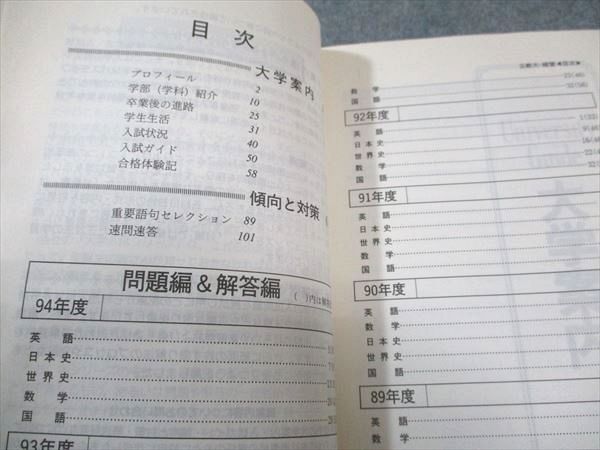 目次
大学案内
プロフィール 2
学部(学科)紹介 10
卒業後の進路 25
学生生活 31
入試状況 40
入試ガイド 50
合格体験記 58
傾向と対策
重要語句セレクション 89
速問速答 101
問題編&解答編
( )内は解答
94年度
英語
日本史
世界史
数学
国語
93年度
立教大-経営◀目次▶
数学 22(46)
国語 32(56)
92年度
英語 1(33)
日本史
世界史
数学
国語
91年度
英語
日本史
世界史
数学
国語
90年度
英語
数学
世界史
国語
89年度
英語
日本史